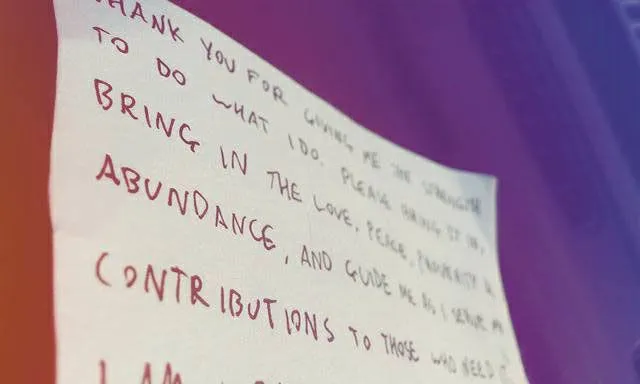 THANK YOU FOR GIVING ME THE STRENGTH
TO DO WHAT I DO. PLEASE BRING IT IN,
BRING IN THE LOVE, PEACE, PROSPERITY &
ABUNDANCE, AND GUIDE ME AS I SERVE MY
CONTRIBUTIONS TO THOSE WHO NEED IT
I AM